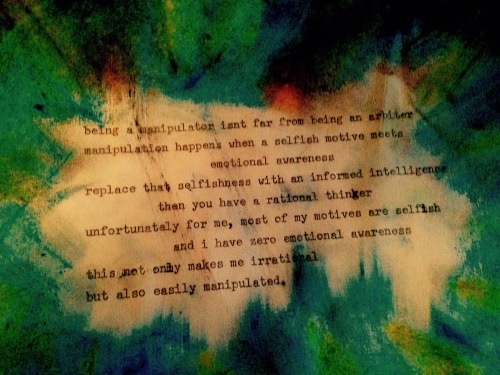 being a manipulator isnt far from being an arbiter
manipulation happens when a selfish motive meets
emotional awareness
replace that selfishness with an informed intelligence
then you have a rational thinker
unfortunately for me, most of my motives are selfish
and i have zero emotional awareness
this not only makes me irrational
but also easily manipulated.